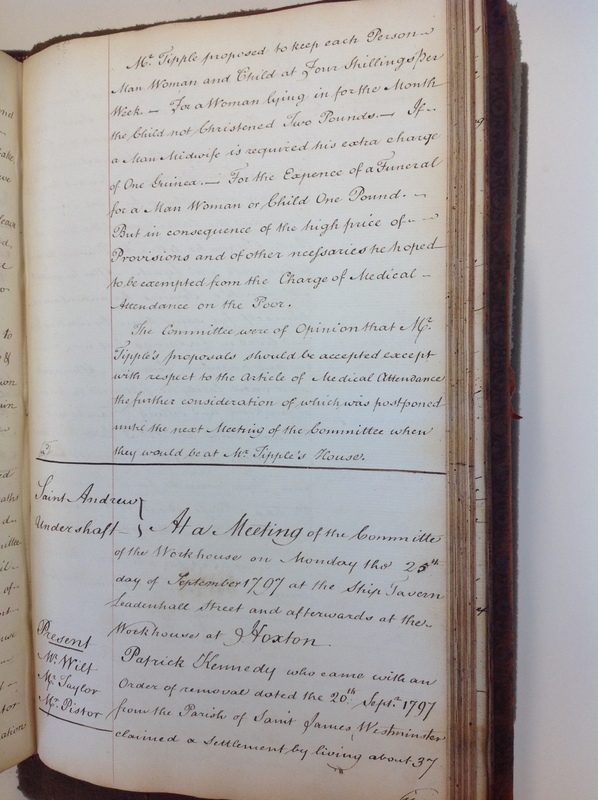 Mr. Tipple proposed to keep each Person
Man Woman and Child at Four Shillings Per
Week. — For a Woman lying in for the Month
the Child not Christened Two Pounds. — If
a Man Midwife is required his extra charge
of One Guinea. — For the Expence of a Funeral
for a Man Woman or Child One Pound. —
But in consequence of the high price of
Provisions and of other necessaries he hoped
to be exempted from the Charge of Medical
Attendance on the Poor.
The Committee were of Opinion that Mr.
Tipple's proposals should be accepted except
with respect to the Article of Medical Attendance
the further consideration of which was postponed
until the next Meeting of the Committee when
they would be at Mr. Tipple's House.
Saint Andrew
Undershaft
At a Meeting of the Committe
of the Workhouse on Monday the 25th
day of September 1797 at the Ship Tavern
Leadenhall Street and afterwards at the
Workhouse at Hoxton
Present
Mr. Wilt
Mr. Taylor
Mr. Pistor
Patrick Kennedy who came with an
Order of removal dated the 20th Septr. 1797
from the Parish of Saint James, Westminster
claimed a settlement by living about 37